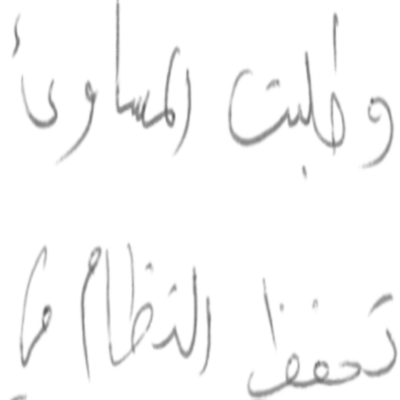 وطلبت المساوئ
تحفظ النظام ما